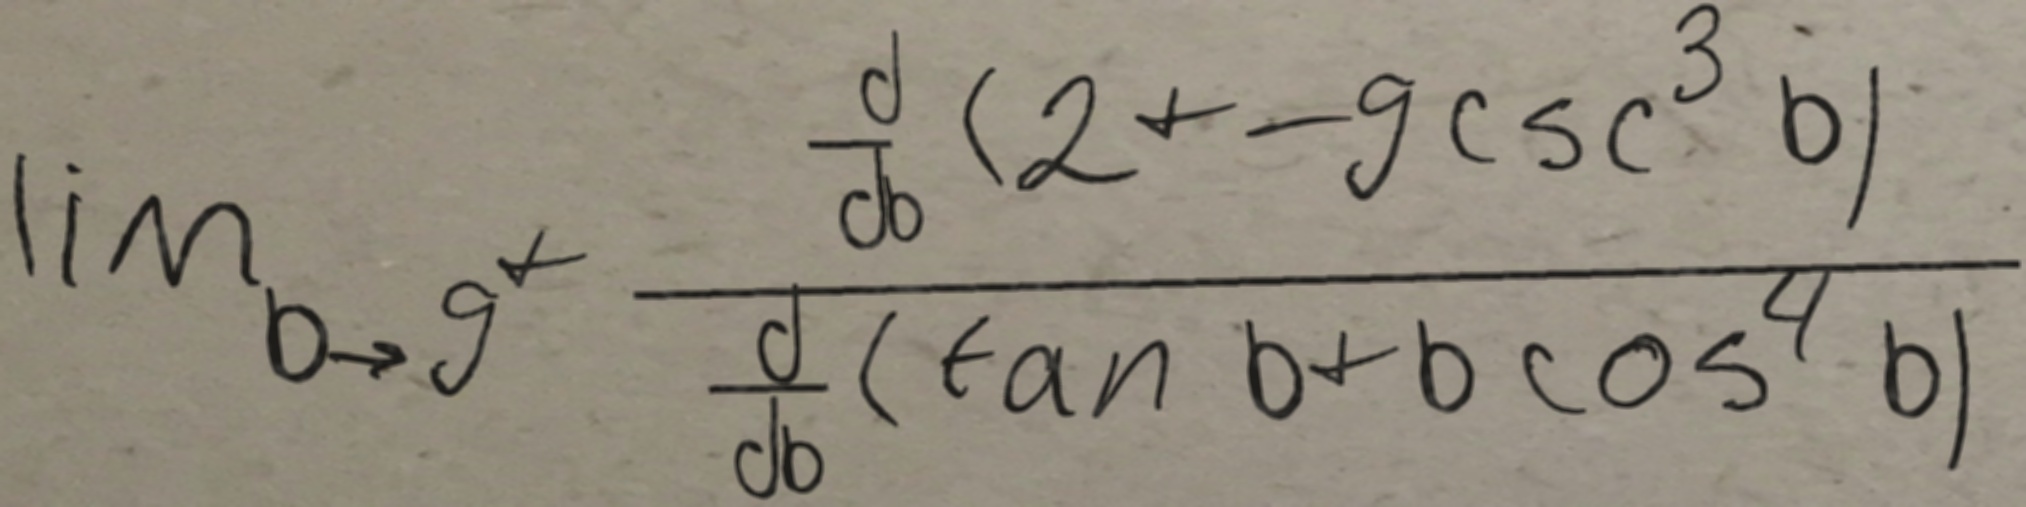 lim b→g⁺ d/db (2 + -g csc³ b) / d/db (tan b + b cos⁴ b)